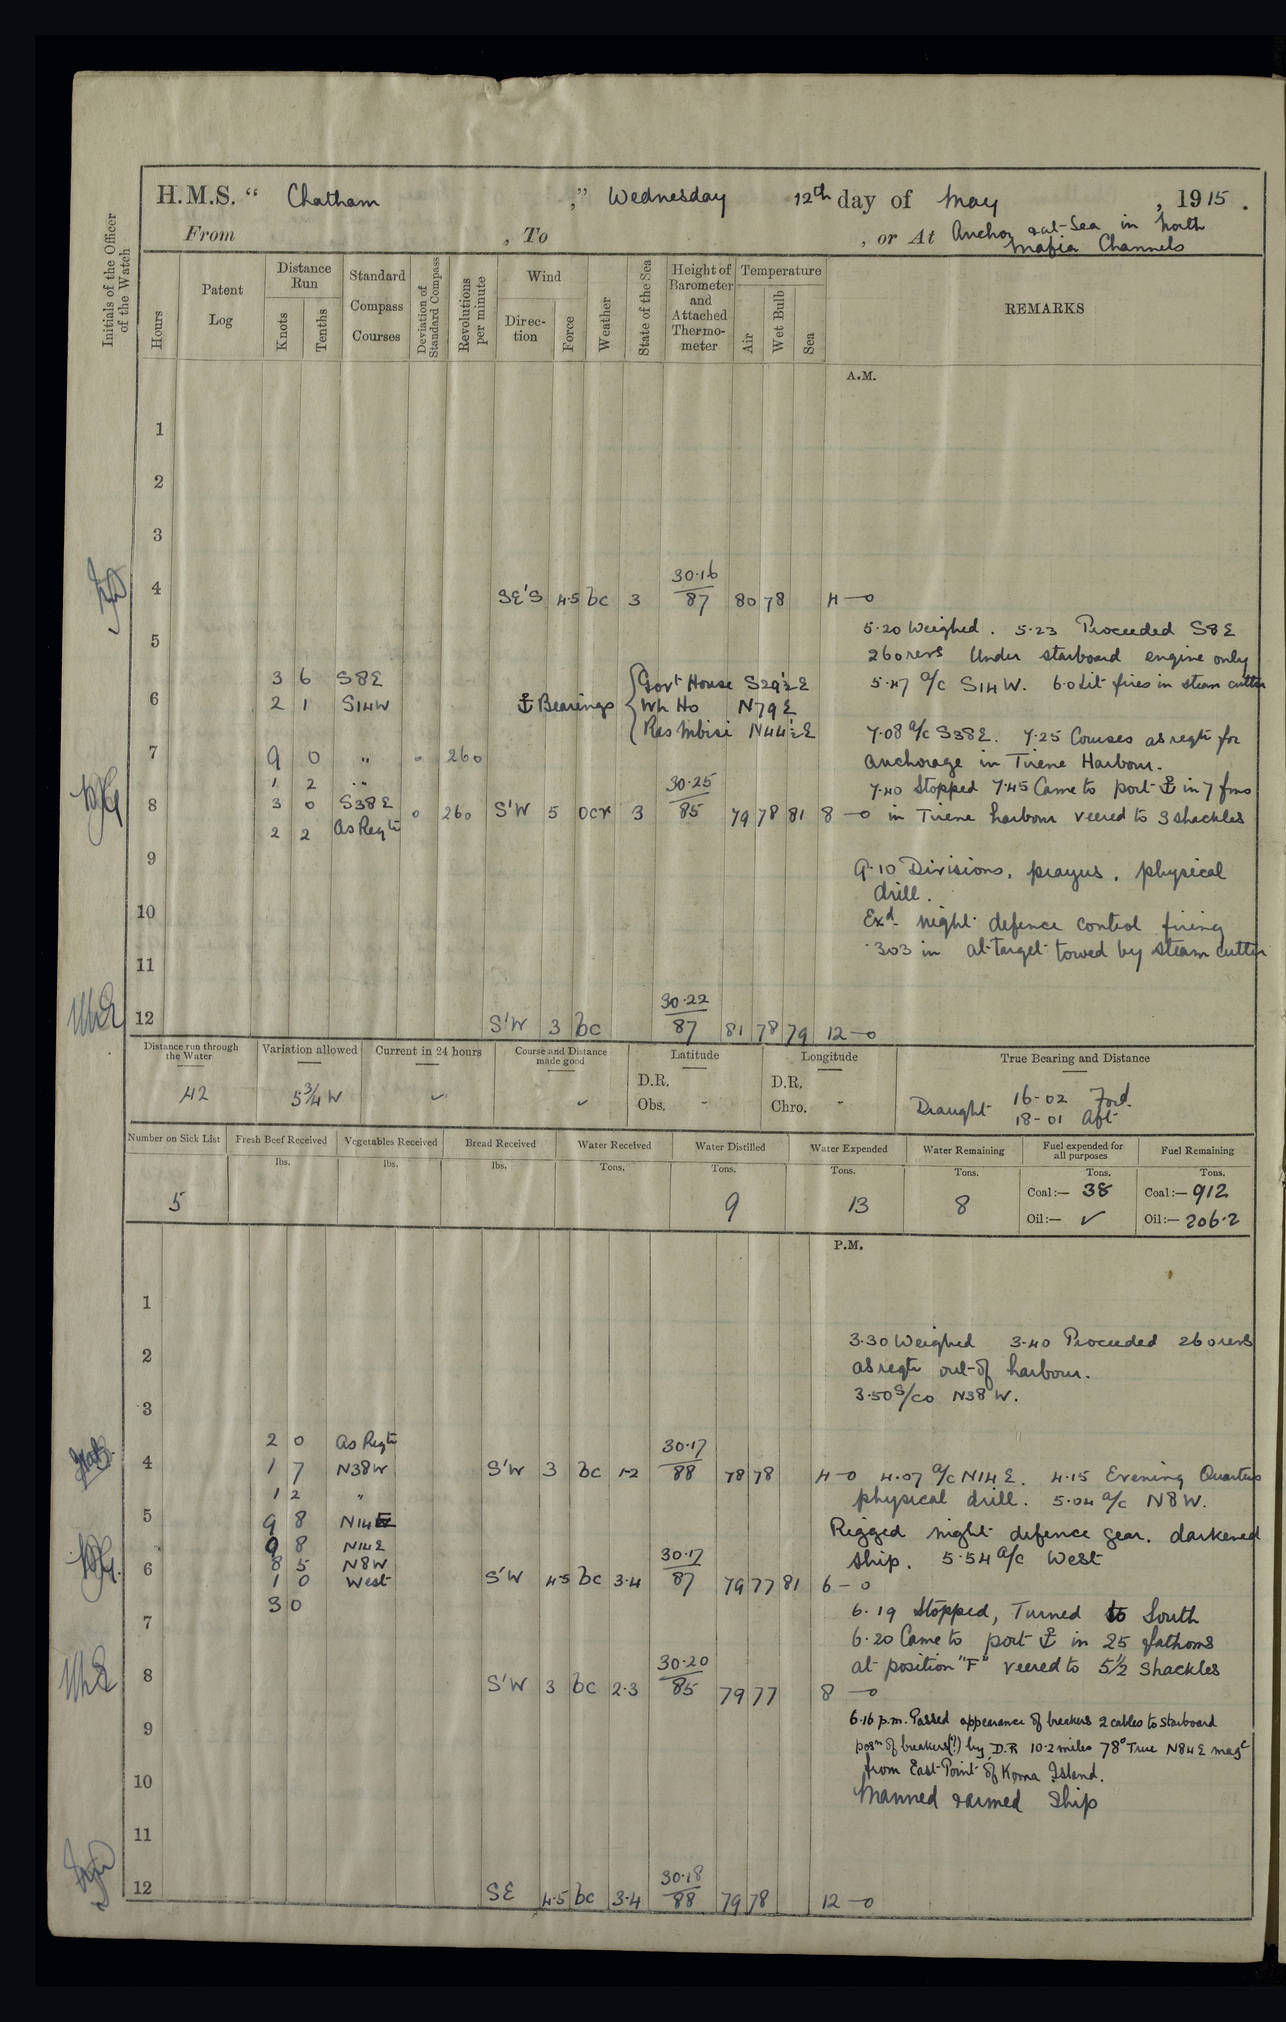 H.M.S. “ Chatham ,” Wednesday 12th day of May , 1915 .
From , To , or At Anchor & at Sea in North
Mafia Channels
Initials of the Officer of the Watch
Hours
Patent Log
Distance Run
Knots
Tenths
Standard Compass Courses
Deviation of Standard Compass
Revolutions per minute
Wind
Direc-tion
Force
Weather
State of the Sea
Height of Barometer and Attached Thermo-meter
Temperature
Air
Wet Bulb
Sea
REMARKS
A.M.
1
2
3
4 SE'S 4·5 bc 3 30·16 87 80 78 4 —0
5·20 Weighed . 5·23 Proceeded S8E
5 260 revs Under starboard engine only
3 6 S8E 5·47 a/c S14W. 6·0 Lit fires in steam cutter
6 2 1 S14W ⚓ Bearings { Govt House S29½E
Wh Ho N79E
Ras Mbisi N44½E
7·08 a/c S38E. 7·25 Courses as reqte for
7 9 0 " 0 260 anchorage in Tirene Harbour.
1 2 " 7·40 Stopped 7·45 Came to port ⚓ in 7 fms
8 3 0 S38E 0 260 S'W 5 ocr 3 30·25 85 79 78 81 8 —0 in Tirene harbour veered to 3 shackles
2 2 As Reqte
9 9·10 Divisions, prayers, physical
drill.
10 Exd. night defence control firing
·303 in at target towed by steam cutter
11
12 S'W 3 bc 30·22 87 81 78 79 12 —0
Distance run through the Water
42
Variation allowed
5¾ W
Current in 24 hours
✓
Course and Distance made good
✓
Latitude
D.R.
Obs. -
Longitude
D.R.
Chro. -
True Bearing and Distance
Draught 16-02 Ford.
18-01 Aft
Number on Sick List
5
Fresh Beef Received
lbs.
Vegetables Received
lbs.
Bread Received
lbs.
Water Received
Tons.
Water Distilled
Tons.
9
Water Expended
Tons.
13
Water Remaining
Tons.
8
Fuel expended for all purposes
Tons.
Coal:— 38
Oil:— ✓
Fuel Remaining
Tons.
Coal:— 912
Oil:— 206·2
P.M.
1
3·30 Weighed 3·40 Proceeded 260 revs
2 as reqte out of harbour.
3·50 S/Co N38W.
3
2 0 As Reqte
4 1 7 N38W S'W 3 bc 1-2 30·17 88 78 78 4 —0 4·07 a/c N14E. 4·15 Evening Quarters
1 2 " physical drill. 5·04 a/c N8W.
5 9 8 N14E Rigged night defence gear. darkened
9 8 N14E ship. 5·54 a/c West
8 5 N8W
6 1 0 West S'W 4·5 bc 3·4 30·17 87 79 77 81 6 — 0
3 0 6·19 Stopped, Turned to South
7 6·20 Came to port ⚓ in 25 fathoms
at position "F" veered to 5½ shackles
8 S'W 3 bc 2·3 30·20 85 79 77 8 —0
6·16 p.m. Passed appearance of breakers 2 cables to starboard
9 posn of breakers(?) by D.R 10·2 miles 78° True N84E magc
from East Point of Koma Island.
10 Manned & armed Ship
11
12 SE 4·5 bc 3·4 30·18 88 79 78 12 —0